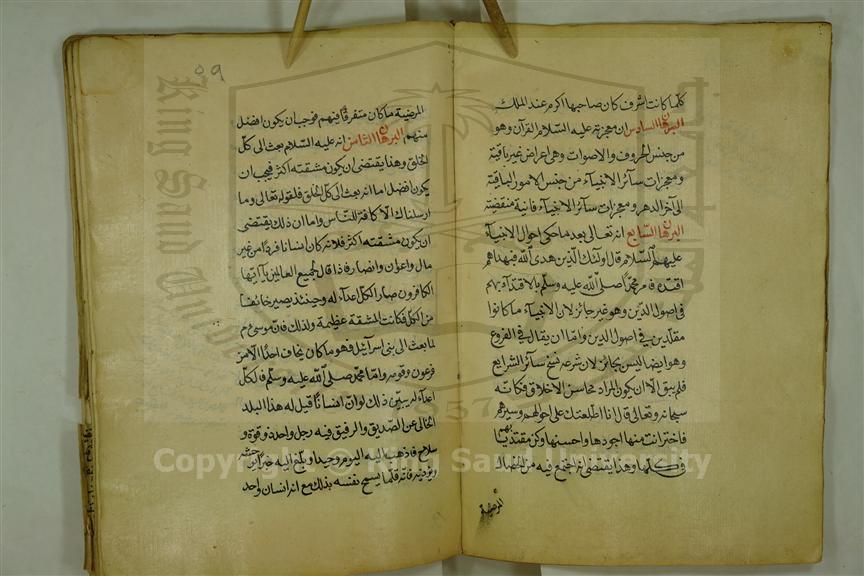 كلما كانت اشرف كان صاحبها اكرم عند الملك
البرهان السادس ان معجزته عليه السلام القرآن وهو
من جنس الحروف والاصوات وهي اعراض غير باقية
ومعجزات سآئر الانبيآء من جنس الامور الباقية
الى آخر الدهر ومعجزات سآئر الانبيآء فانية منقضية
البرهان السابع انه تعالى بعد ما حكى احوال الانبيآء
عليهم السلام قال اولئك الذين هدى الله فبهداهم
اقتده فامر محمدا صلى الله عليه وسلم بالاقتدآء بهم
في اصول الدين وهو غير جائز لان الانبيآء ما كانوا
مقلدين في اصول الدين واما ان يقال في الفروع
وهو ايضا ليس بجائز لان شرعه نسخ سآئر الشرايع
فلم يبق الا ان يكون المراد محاسن الاخلاق فكانه
سبحانه وتعالى قال انا اطلعتك على احوالهم وسيرهم
فاختر انت منها اجودها واحسنها وكن مقتديا بهم
في كلها وهذا يقتضي انه اجتمع فيه من الخصال
المرضية
٥٩
المرضية ما كان متفرقا فيهم فوجب ان يكون افضل
منهم البرهان الثامن انه عليه السلام بعث الى كل
الخلق وهذا يقتضي ان يكون مشقته اكثر فيجب ان
يكون افضل اما انه بعث الى كل الخلق فلقوله تعالى وما
ارسلناك الا كافة للناس واما ان ذلك يقتضي
ان يكون مشقته اكثر فلانه كان انسانا فردا من غير
مال واعوان وانصار فاذا قال لجميع العالمين يآ ايها
الكافرون صار الكل اعدآء له وحينئذ يصير خائفا
من الكل فكانت المشقة عظيمة ولذلك فان موسى عم
لما بعث الى بني اسرآئيل فهو ما كان يخاف احدا الا من
فرعون وقومه واما محمد صلى الله عليه وسلم فالكل
اعدآء له يبين ذلك لو ان انسانا قيل له هذا البلد
الخالي عن الصديق والرفيق فيه رجل واحد ذو قوة و
سلاح فاذهب اليه اليوم وحيدا وبلغ اليه خبرا
يؤذيه فانه قلما يسمح نفسه بذلك مع انه انسان واحد
King Saud University
1957
Copyright © King Saud University